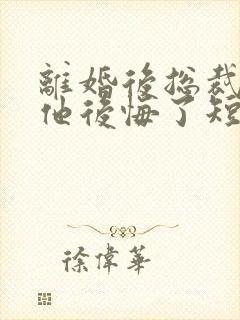 離婚後総裁
他後悔了短
徐偉華